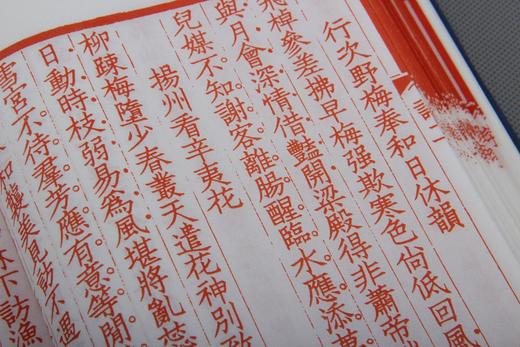 行次野梅奉和日休韻
飛棹參差拂早梅强欺寒色尙低回風
與。月會深情借豔開。梁殿得非蕭帝
兒媒。不知謝客離腸醒。臨水應添萬
揚州看辛夷花
柳疎梅墮少春叢天遣花神別致
日。動時枝弱易爲風。堪將亂蕊
宮。不待羣芳應有意。等閒
和襲美見訪不遇
林下訪漁